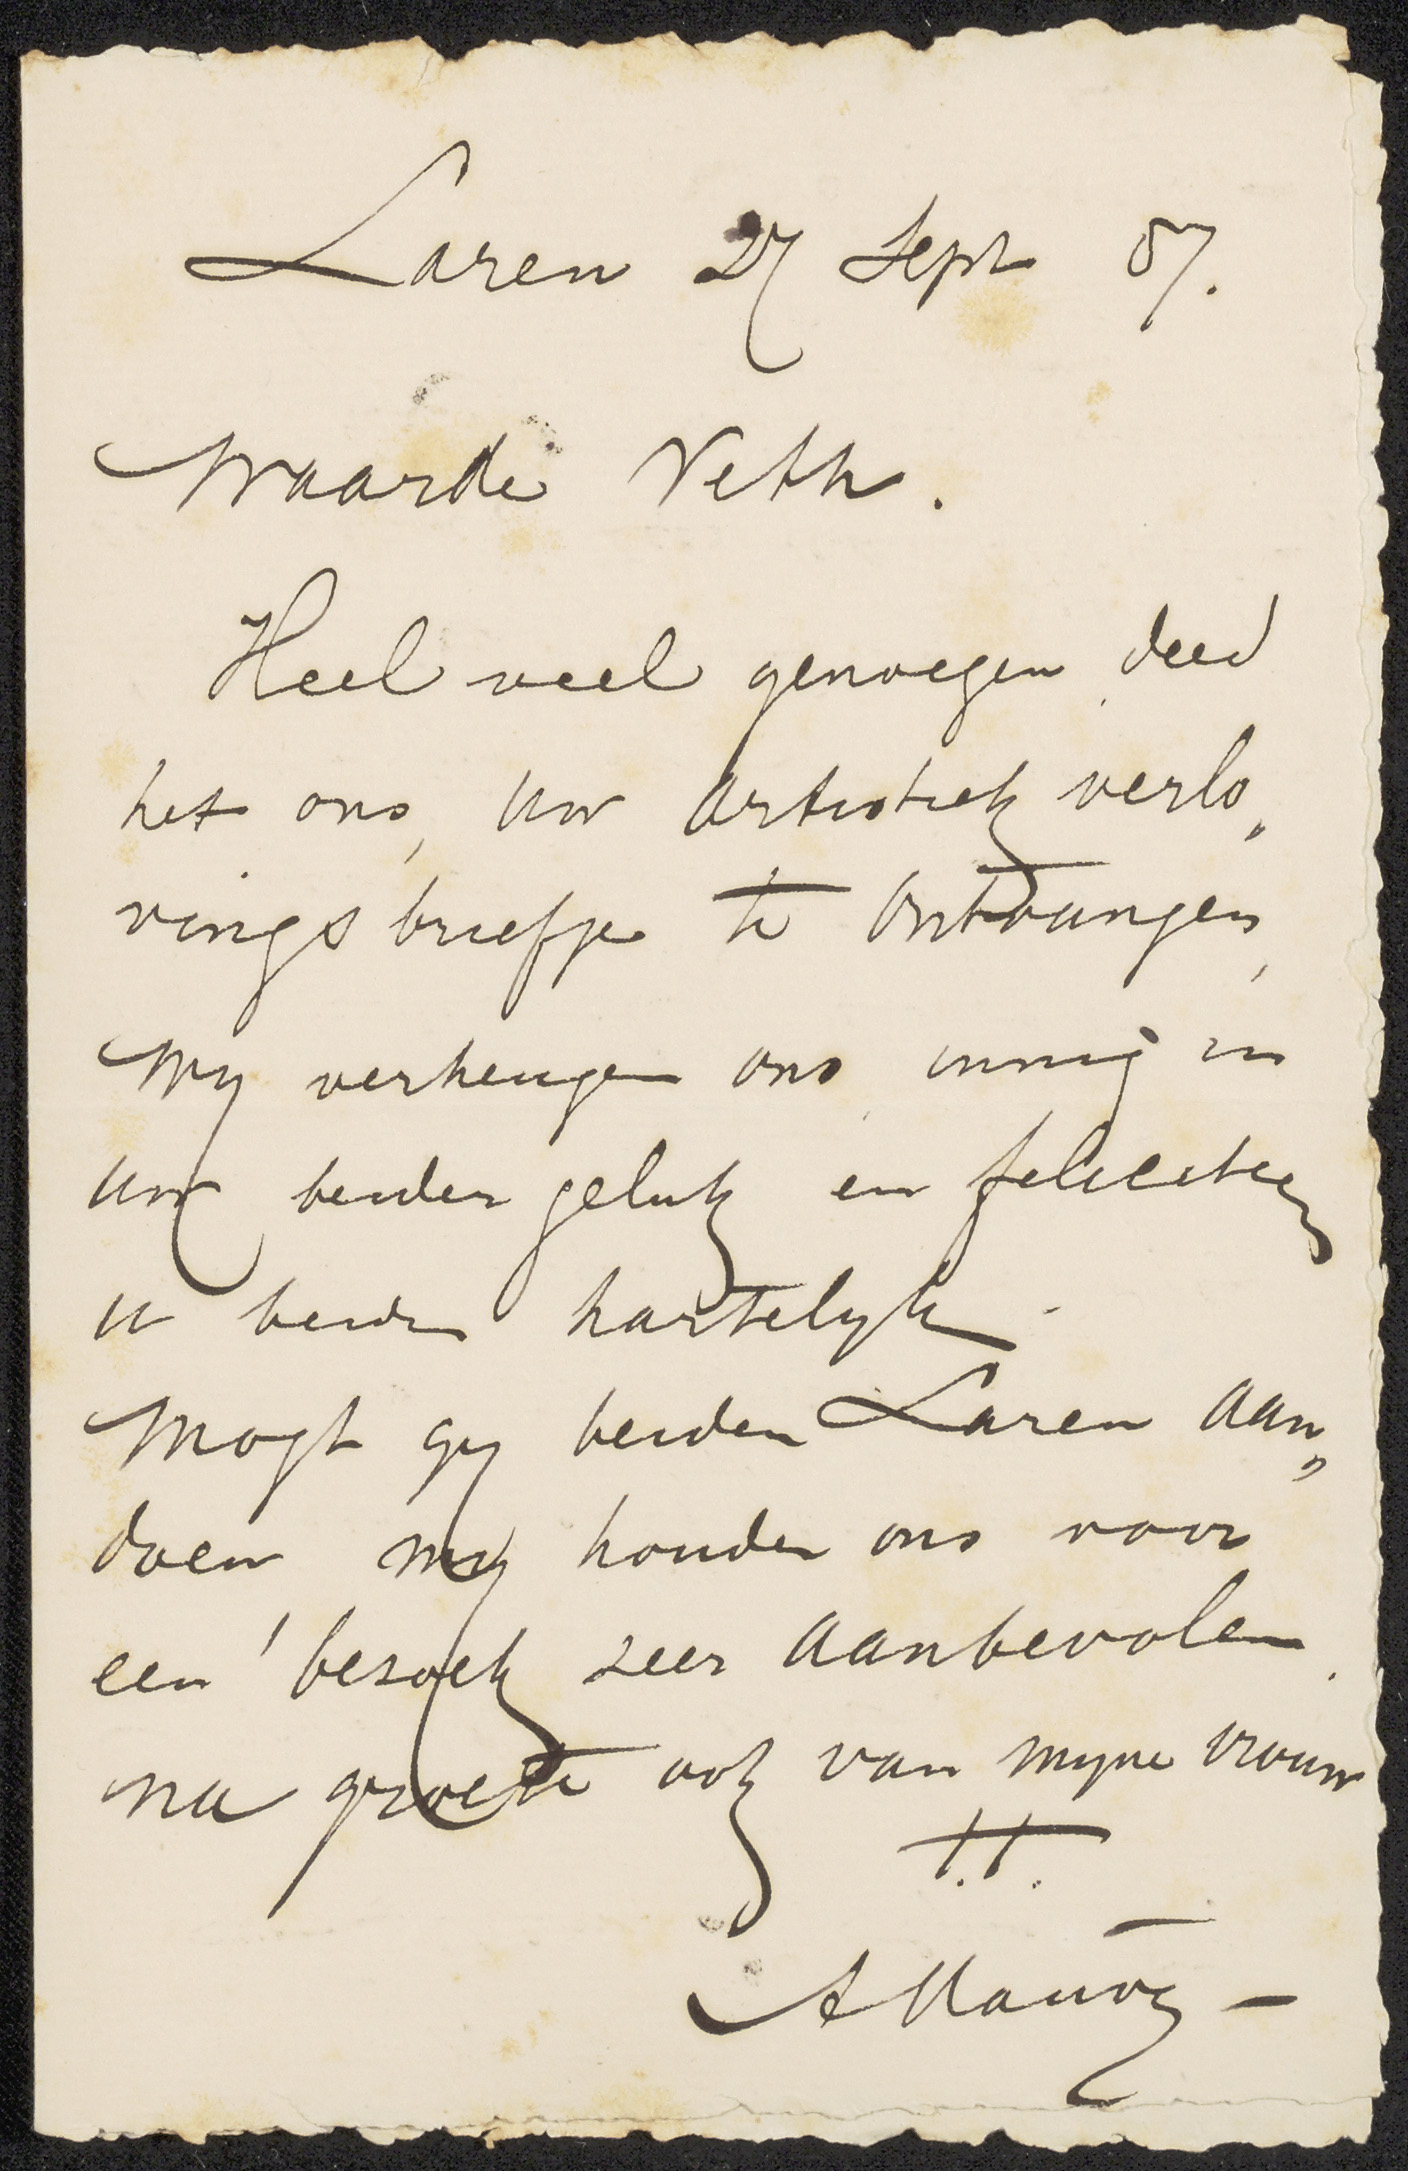 Laren 27 Sept 87.
Waarde Veth.
Heel veel genoegen deed
het ons, uw artistiek verlo„
vingsbriefje te ontvangen,
Wy verheugen ons innig in
uw beider geluk en feliciteer
u beiden hartelyk.
Mogt gy beiden Laren aan„
doen wy houden ons voor
een bezoek zeer aanbevolen.
na groete ook van myne vrouw
t.t.
A Mauve